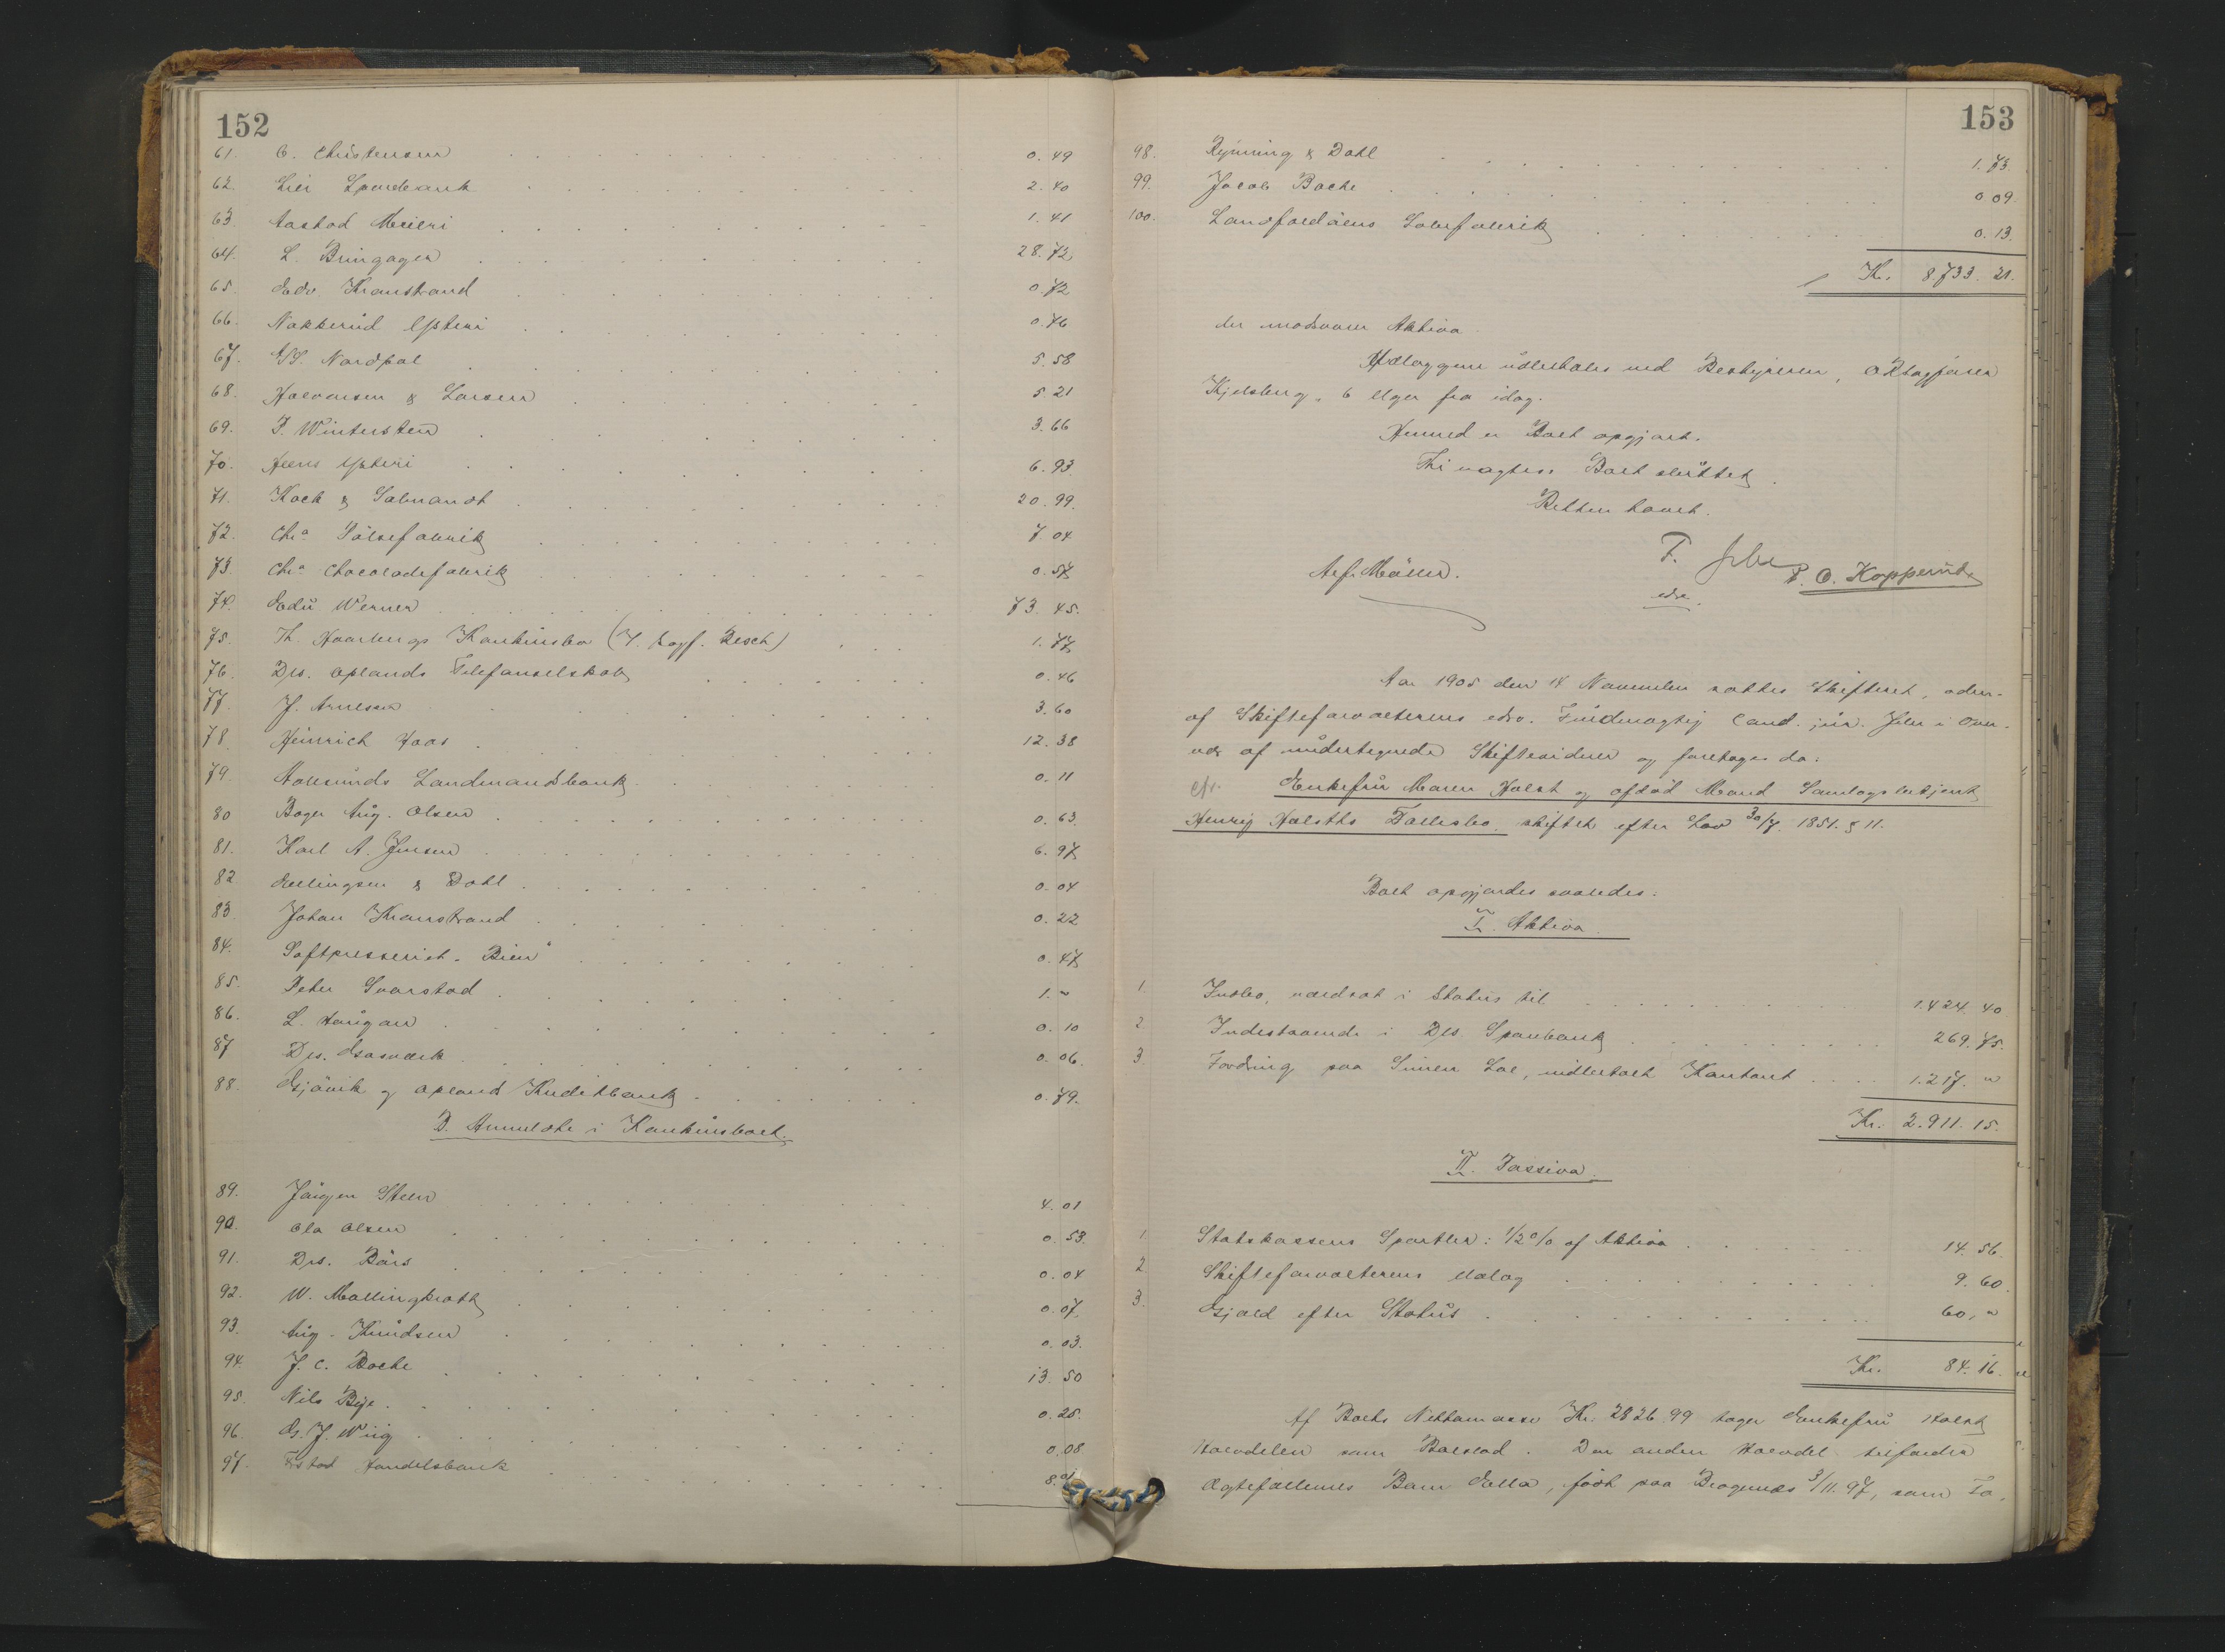 152
61. C. Christensen 0.49
62. Lier Sparebank 2.40
63. Aastad Meieri 1.41
64. L. Bringager 28.72
65. Edv. Kranstrand 0.72
66. Nakkerud Ysteri 0.76
67. A/S. Nordpol 5.58
68. Halvorsen & Larsen 5.21
69. P. Wintersten 3.66
70. Ysteri 6.93
71. Kock & Salmandt 20.99
72. Chra Pølsefabrik 7.04
73. Chra Chocoladefabrik 0.57
74. Edu Werner 73.45
75. Th. Haarbergs Konkursbo 1.77
76. Drs. Oplands Telefonselskab 0.46
77. J. Arnesen 3.60
78. Heinrich Haas 12.38
79. Landmandsbank 0.11
80 Bager Aug. Olsen 0.63
81. Karl A. Jensen 6.97
82 Ellingsen & Dahl 0.04
83 Johan Kranstrand 0.22
84. Saftpresseriet "Bien" 0.47
85. Peter Svarstad 1."
86. L. Haugan 0.10
87 Drs. Gasværk 0.06.
88. Gjøvik og Opland Kreditbank 0.79.
D. Anmeldte i Konkursboet.
89. Jørgen Steen 4.01
90. Ola Olsen 0.53.
91. Drs. Børs 0.04
92. W. Mallingkrott 0.07
93. Aug. Knudsen 0.03.
94. J. C. Boche 13.50
95. Nils Bye 0.25.
96. G. J. Wiig 0.08
97. Handelsbank 8.01
153
98. Rynning & Dahl 1.73
99. Jacob Boche 0.09
100. Landfaldøiens Sæbefabrik 0.13.
Kr. 8733.21.
der modsvarer Aktiva.
Udlæggene udbetales ved Bestyreren, O.R.sagfører
Kjelsberg, 6 Uger fra idag.
Hermed er Boet opgjort.
Thi vagtes: Boet sluttet.
Retten hævet.
F. Jebe
edsv.
P. O. Kopperud
Aar 1905 den 14 November sattes Skifteret, adm.
af Skifteforvalterens edsv. Fuldmægtig Cand. jur. Jebe i Over-
vær af undertegnede Skiftevidner og foretoges da:
Enkefru Maren Holst og afdød Mand Samlagsbetjent
Henrig Holsths Fællesbo, skiftet efter Lov 30/7 1851. § 11.
Boet opgjordes saaledes:
I. Aktiva.
1. Indbo, værdsat i Status til 1.424.40
2. Indestaaende i Drs. Sparebank 269.75.
3. Fordring paa Simen Lol, indbetalt Kontant 1.217."
Kr. 2.911.15.
II. Passiva.
1. Statskassens Sportler: 1/2 % af Aktiva 14.56.
2 Skifteforvalterens Udlæg 9.60
3. Gjæld efter Status 60."
Kr. 84.16.
Af Boets Nettomasse Kr. 2826.99 tager Enkefru Holst
Halvdelen som Boslod. Den anden Halvdel tilfalder
Ægtefællernes Barn Ella, født paa Bragernæs 3/11.97, som Fa-